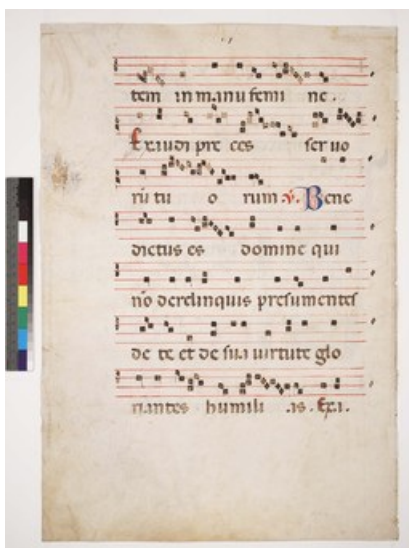 tem in manu femi ne.
Exaudi pre ces ser uo
rū tu o rum ℣. Bene
dictus es domine qui
nō derelinquis presumentes
de te et de sua uirtute glo
riantes humili as. Exa.